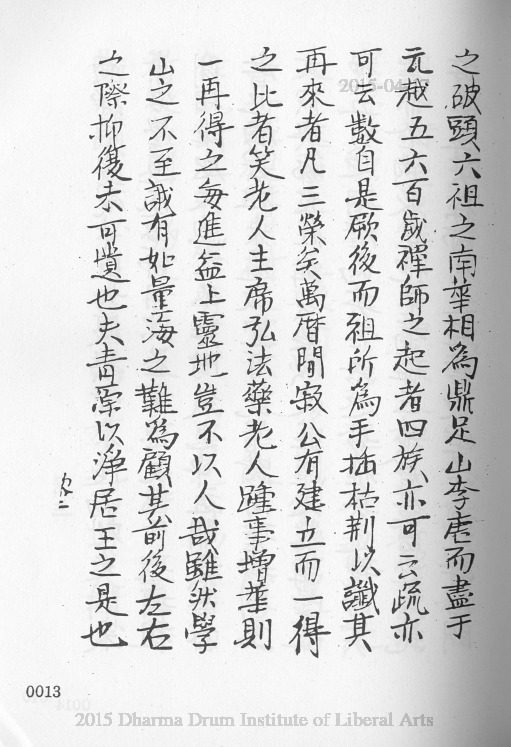 之破頭六祖之南華相為鼎足山李唐而盡于
元越五六百歲禪師之起者四族亦可云疏亦
可云數自是厥後而祖所為手插枯荆以讖其
再來者凡三榮矣萬曆間寂公有建立而一得
之比者笑老人主席弘法藥老人踵事增華則
一再得之每進益上靈地豈不以人哉雖狀學
山之不至誠有如量海之難為顧其前後左右
之際抑復未可遺也夫青原以淨居王之是也
0013
2015 Dharma Drum Institute of Liberal Arts